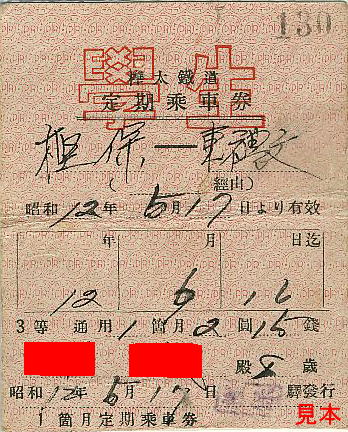 130
學生
樺太鐵道
定期乘車券
樫保―東禮文
(經由)
昭和12年5月17日より有效
年 月 日迄
12 6 16
3等通用1箇月2圓15錢
殿8歲
昭和12年5月17日 驛發行
1箇月定期乘車券
見本